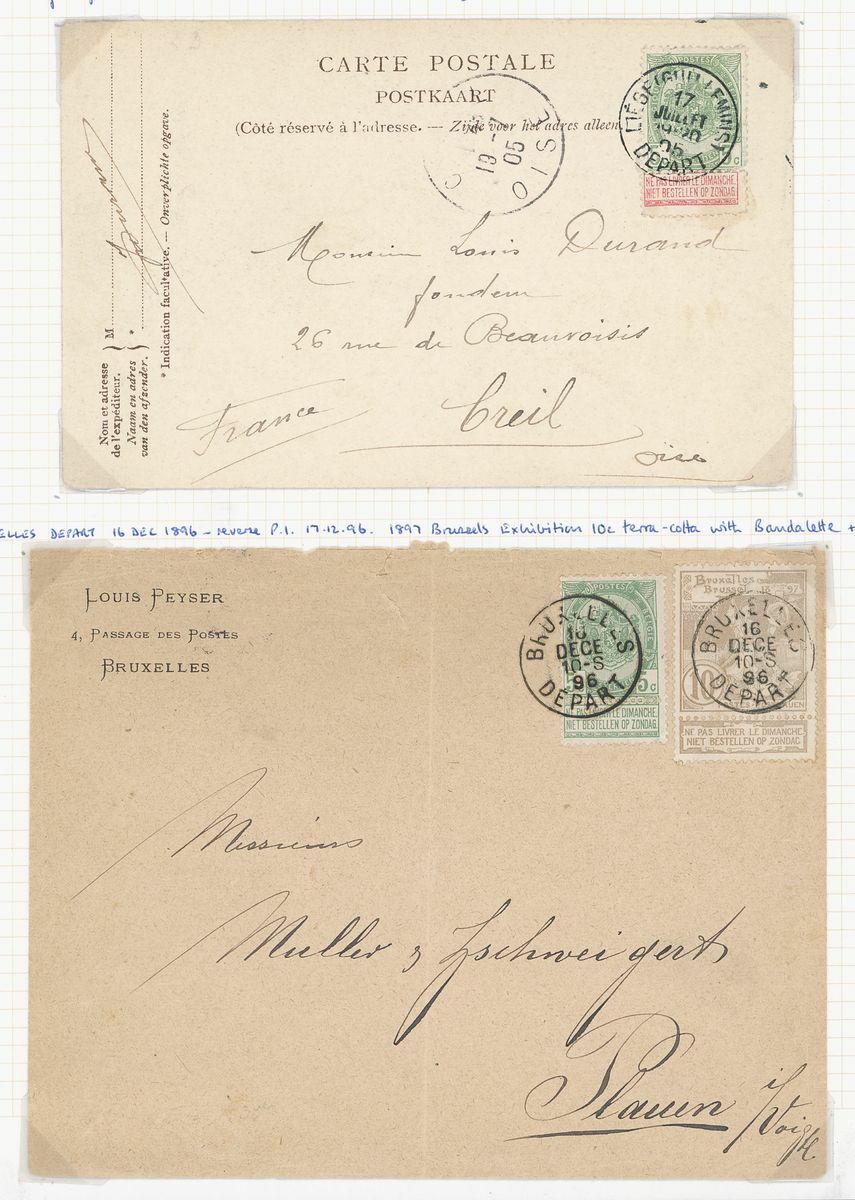 CARTE POSTALE
POSTKAART
(Côté réservé à l'adresse. — Zijde voor het adres alleen
POSTES
LIÉGE (GUILLEMINS)
17
JUILLET
19-20
05
DEPART
NE PAS LIVRER LE DIMANCHE
NIET BESTELLEN OP ZONDAG
19 -7
05
OISE
Monsieur Louis Durand
fondeur
26 rue de Beauvoisis
Creil
France
Oise
Nom et adresse
de l'expéditeur.
Naam en adres
van den afzender.
M
*
* Indication facultative. — Onverplichte opgave.
ELLES DEPART 16 DEC 1896 – reverse P.1. 17.12.96. 1897 Brussels Exhibition 10c terra-cotta with Bandalette +
LOUIS PEYSER
4, PASSAGE DES POSTES
BRUXELLES
POSTES
5c
BRUXELLES
16
DECE
10-S
96
DEPART
NE PAS LIVRER LE DIMANCHE
NIET BESTELLEN OP ZONDAG
Bruxelles
Brussel 18 97
10
BRUXELLES
16
DECE
10-S
96
DEPART
NE PAS LIVRER LE DIMANCHE
NIET BESTELLEN OP ZONDAG
Messieurs
Muller & Zschweigert
Plauen i/Voigtl.